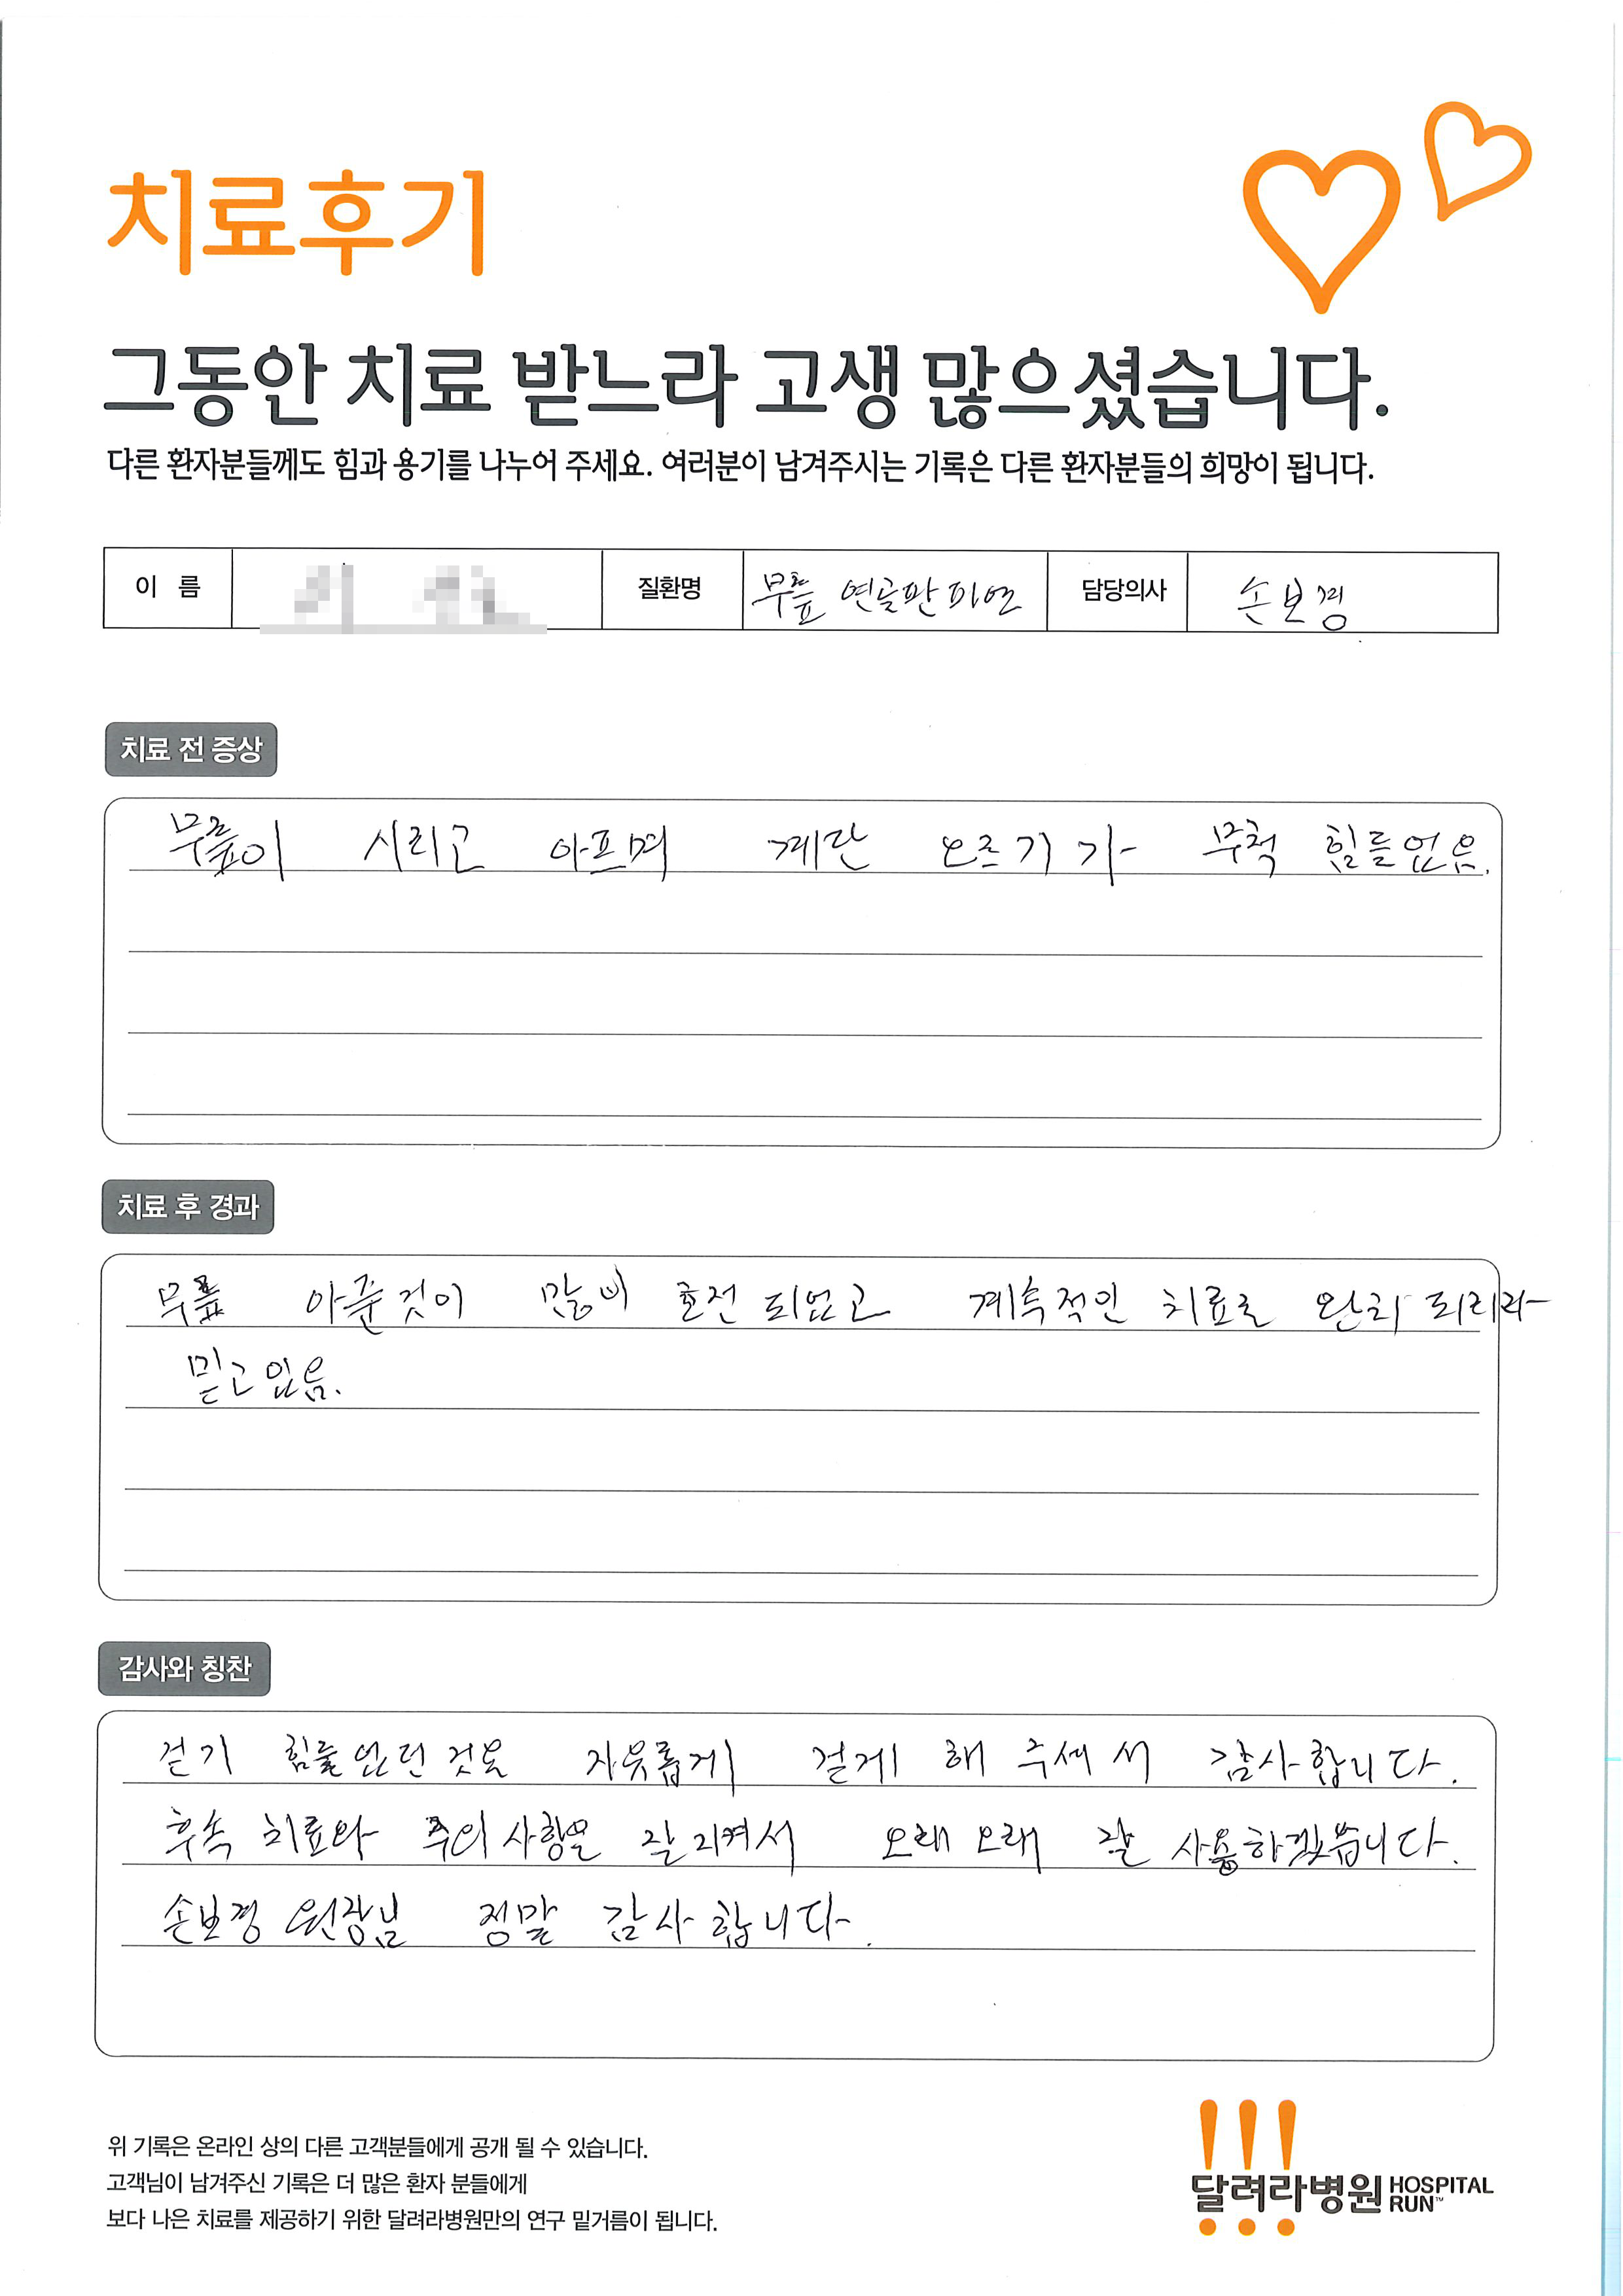 치료후기
그동안 치료 받느라 고생 많으셨습니다.
다른 환자분들께도 힘과 용기를 나누어 주세요. 여러분이 남겨주시는 기록은 다른 환자분들의 희망이 됩니다.
이 름 질환명 무릎 연골판파열 담당의사 손보경
치료 전 증상
무릎이 시리고 아프며 계단 오르기가 무척 힘들었음.
치료 후 경과
무릎 아픈것이 많이 호전 되었고 계속적인 치료로 완리 되리라
믿고있음.
감사와 칭찬
걷기 힘들었던 것을 자유롭게 걷게 해 주셔서 감사합니다.
후속 치료와 주의사항을 잘지켜서 오래오래 잘 사용하겠습니다.
손보경 원장님 정말 감사합니다.
위 기록은 온라인 상의 다른 고객분들에게 공개 될 수 있습니다.
고객님이 남겨주신 기록은 더 많은 환자 분들에게
보다 나은 치료를 제공하기 위한 달려라병원만의 연구 밑거름이 됩니다.
달려라병원 HOSPITAL RUN™